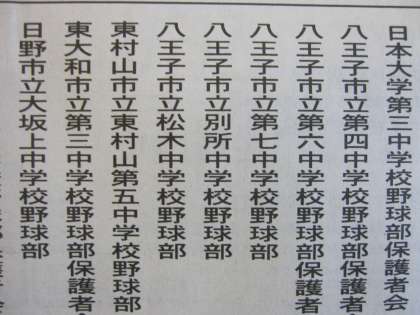 日本大学第三中学校野球部保護者会
八王子市立第四中学校野球部保護者
八王子市立第六中学校野球部保護者
八王子市立第七中学校野球部
八王子市立別所中学校野球部
八王子市立松木中学校野球部
東村山市立東村山第五中学校野球部
東大和市立第三中学校野球部保護者会
日野市立大坂上中学校野球部